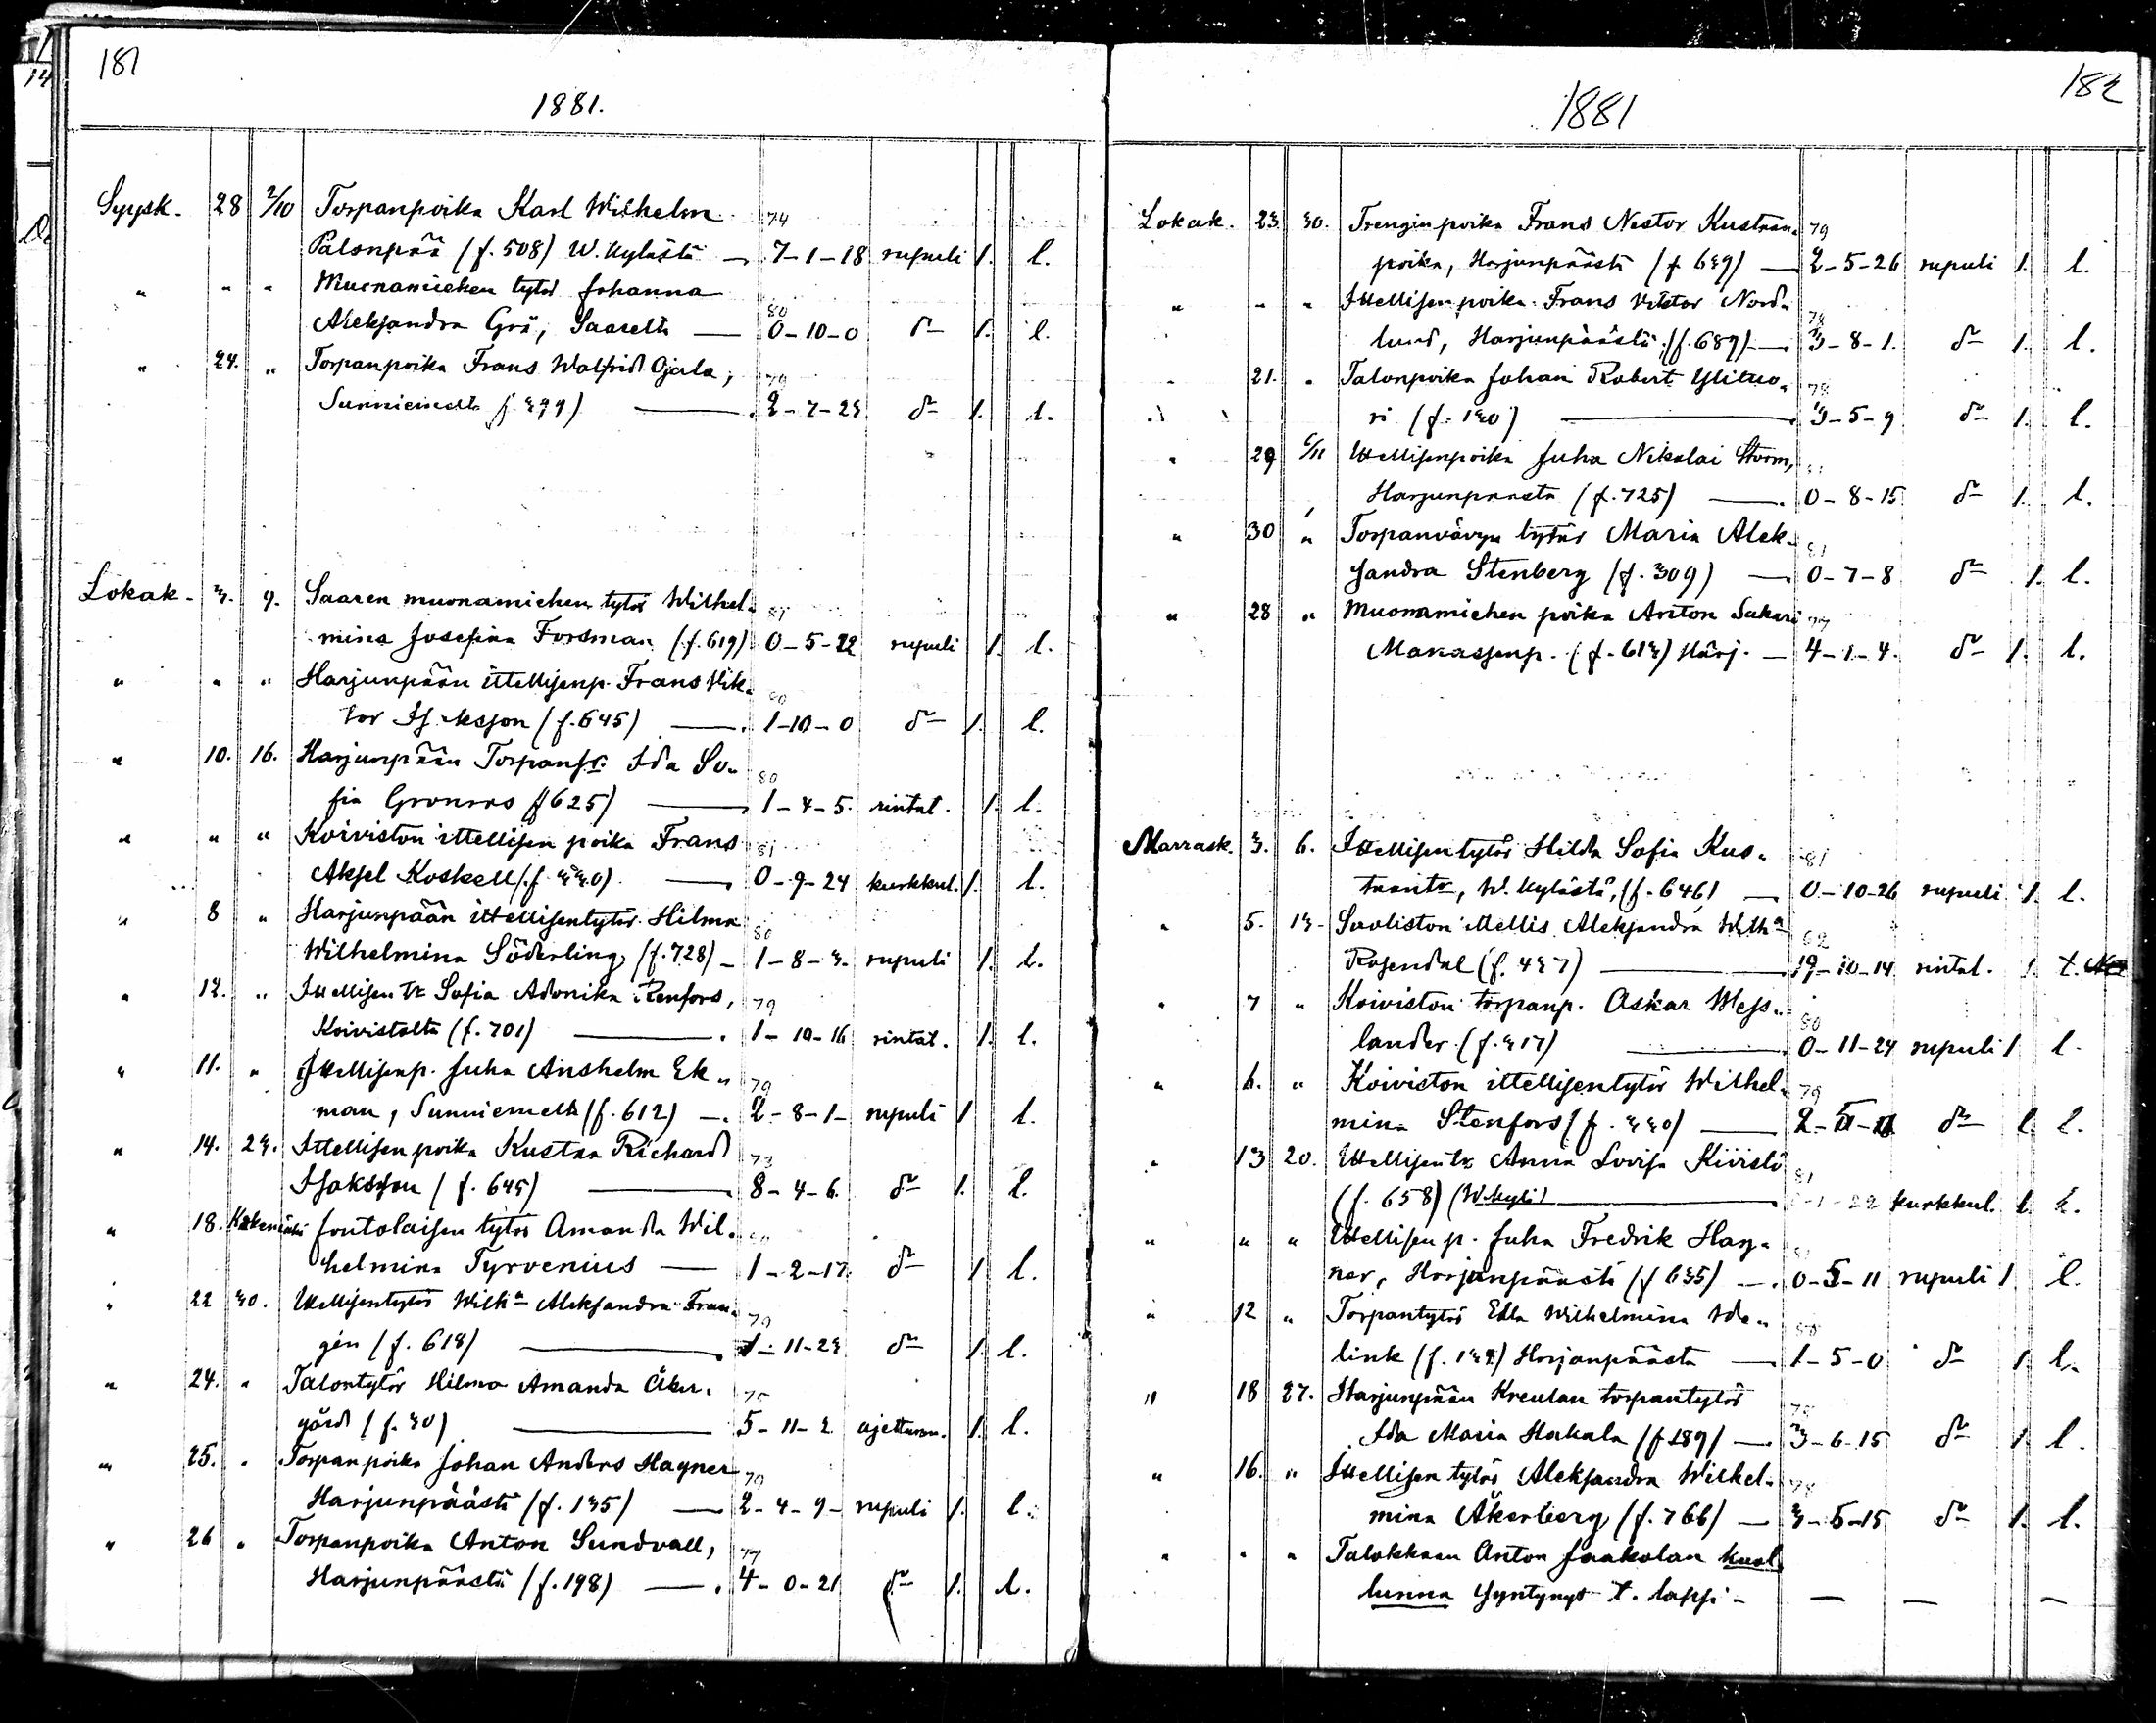 181
1881.
Syysk. 28 2/10 Torpanpoika Karl Wilhelm 74
Palonpää (f. 508) W. kylästä — 7-1-18 rupuli 1. l.
" " " Muonamiehen tytös Johanna 80
Aleksandra Grö, Saarelta — 0-10-0 d:o 1. l.
" 24. " Torpanpoika Frans Walfrid Ojala, 79
Sunniemelta — 2-7-23 d:o 1. l.
Lokak. 3. 9. Saaren muonamiehen tytös Wilhel- 81
mina Josefina Forsman (f. 619) 0-5-22 rupuli 1. l.
" " " Harjunpään ittellisenp. Frans Wik-
tor Isaksson (f. 645) — 1-10-0 d:o 1. l.
" 10. 16. Harjunpään Torpan Ida So- 80
fia Gronroos (f 625) — 1-4-5. rintat. 1. l.
" " " Koiviston ittellisen poika Frans 81
Aksel Koskell (f. 330) — 0-9-24 kurkkul. 1. l.
" 8 " Harjunpään ittellisentytös Hilma 80
Wilhelmina Söderling, (f. 728) — 1-8-3. rupuli 1. l.
" 12. " Ittellisen tr Sofia Adonika Renfors, 79
Koivistolta (f. 701) — 1-10-16 rintat. 1. l.
" 11. " Ittellisenp. Juha Anshelm Ek- 79
man, Sunniemelta (f. 612) — 2-8-1- rupuli 1 l.
" 14. 23. Ittellisen poika Kustaa Richard 73
Isaksson (f. 645) — 8-4-6. d:o 1. l.
" 18. Kokemäki loutolaisen tytös Amanda Wil-
helmina Tyrvenius — 1-2-17. d:o 1 l.
" 22 30. Ittellisentytös Wilh:a Aleksandra Fran- 79
gén (f. 618) — 1-11-23 d:o 1. l.
" 24. " Talontytös Hilma Amanda Åker- 75
gård (f. 30) — 5-11-2 ajettuma. 1. l.
" 25. " Torpanpoika Johan Anders Hagner 79
Harjunpäästä (f. 135) — 2-4-9- rupuli 1. l.
" 26 " Torpanpoika Anton Sundvall, 77
Harjunpäästä (f. 198) — 4-0-21 d:o 1. l.
182
1881
Lokak. 23. 30. Trenginpoika Frans Nestor Kustaan- 79
poika, Harjunpäästä (f 639) — 2-5-26 rupuli 1. l.
" " " Ittellisen poika Frans Viktor Nord- 78
lund, Harjunpäästä (f. 689) — 3-8-1. d:o 1. l.
" 21. " Talonpoika Johan Robert Ylituo- 78
ri (f. 130) — 3-5-9 d:o 1. l.
" 29 6/11 Ittellisenpoika Juha Nikolai Storm,
Harjunpäästä (f. 725) — 0-8-15 d:o 1. l.
" 30 " Torpanvävyn tytös Maria Alek- 81
sandra Stenberg (f. 309) — 0-7-8 d:o 1. l.
" 28 " Muonamiehen poika Anton Sakari 77
Manassenp. (f. 613) Harj. — 4-1-4. d:o 1. l.
Marrask. 3. 6. Ittellisentytös Hilda Sofia Kus- 81
taantr, W. kylästä, (f. 646) — 0-10-26 rupuli 1. l.
" 5. 13. Sooliston ittellis. Aleksandra Wilh:a 62
Rosendal (f. 437) — 19-10-14 rintat. 1. t.
" 7 " Koiviston torpanp. Oskar Wess- 80
lander (f. 317) — 0-11-24 rupuli 1 l.
" 6. " Koiviston ittellisentytös Wilhel- 79
mina Stenfors (f. 330) — d:o l. l.
" 13 20. Ittellisentr Anna Lovisa Kiiristö 81
(f. 658) (W. kylä) — kurkkul. 1. l.
" " " Ittellisen p. Juha Fredrik Hag- 81
ner, Harjunpäästä (f 635) — 0-5-11 rupuli 1 l.
" 12 " Torpantytös Edla Wilhelmina Ide- 80
link (f. 132) Harjanpäästä — 1-5-0 d:o 1 l.
" 18 27. Harjunpään Kreulan torpantytös 78
Ida Maria Hakala (f 189) — 3-6-15 d:o 1 l.
" 16. " Ittellisen tytös Aleksandra Wilhel- 78
mina Åkerberg, (f. 766) — 3-5-15 d:o 1. l.
" " " Talokkaan Anton Jaakolan kuol-
lunna syntynyt t. lapsi — — — —